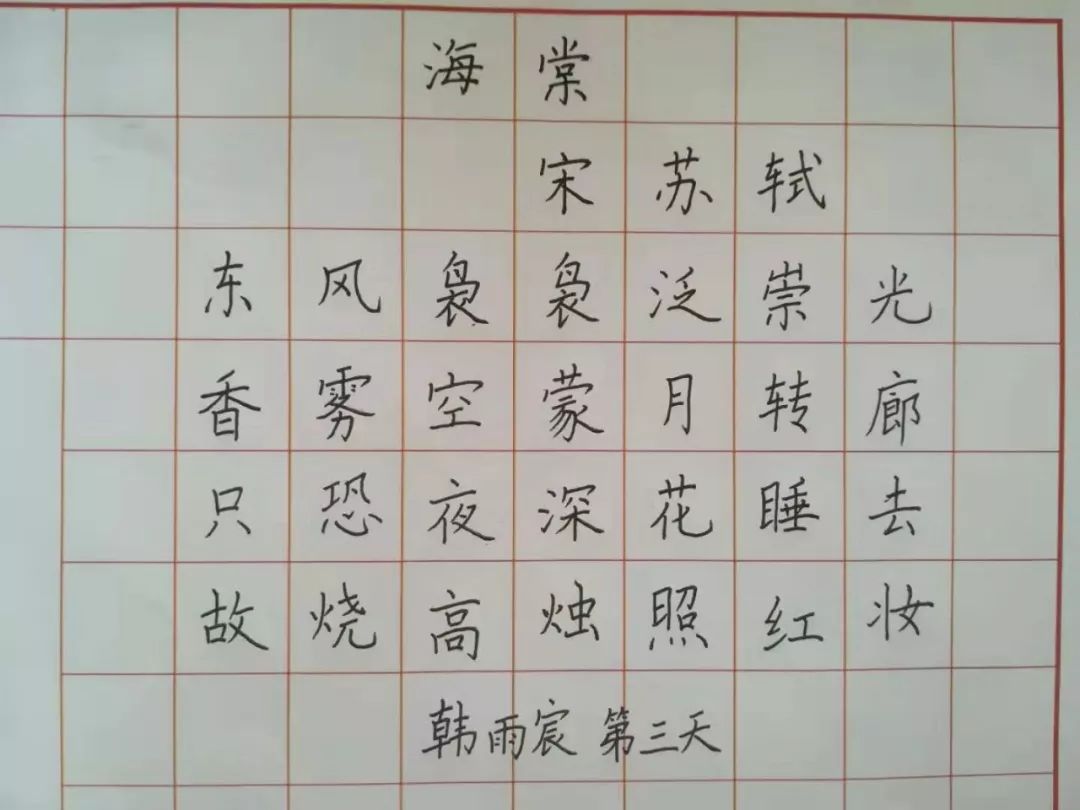 海棠
宋苏轼
东风袅袅泛崇光
香雾空蒙月转廊
只恐夜深花睡去
故烧高烛照红妆
韩雨宸 第三天